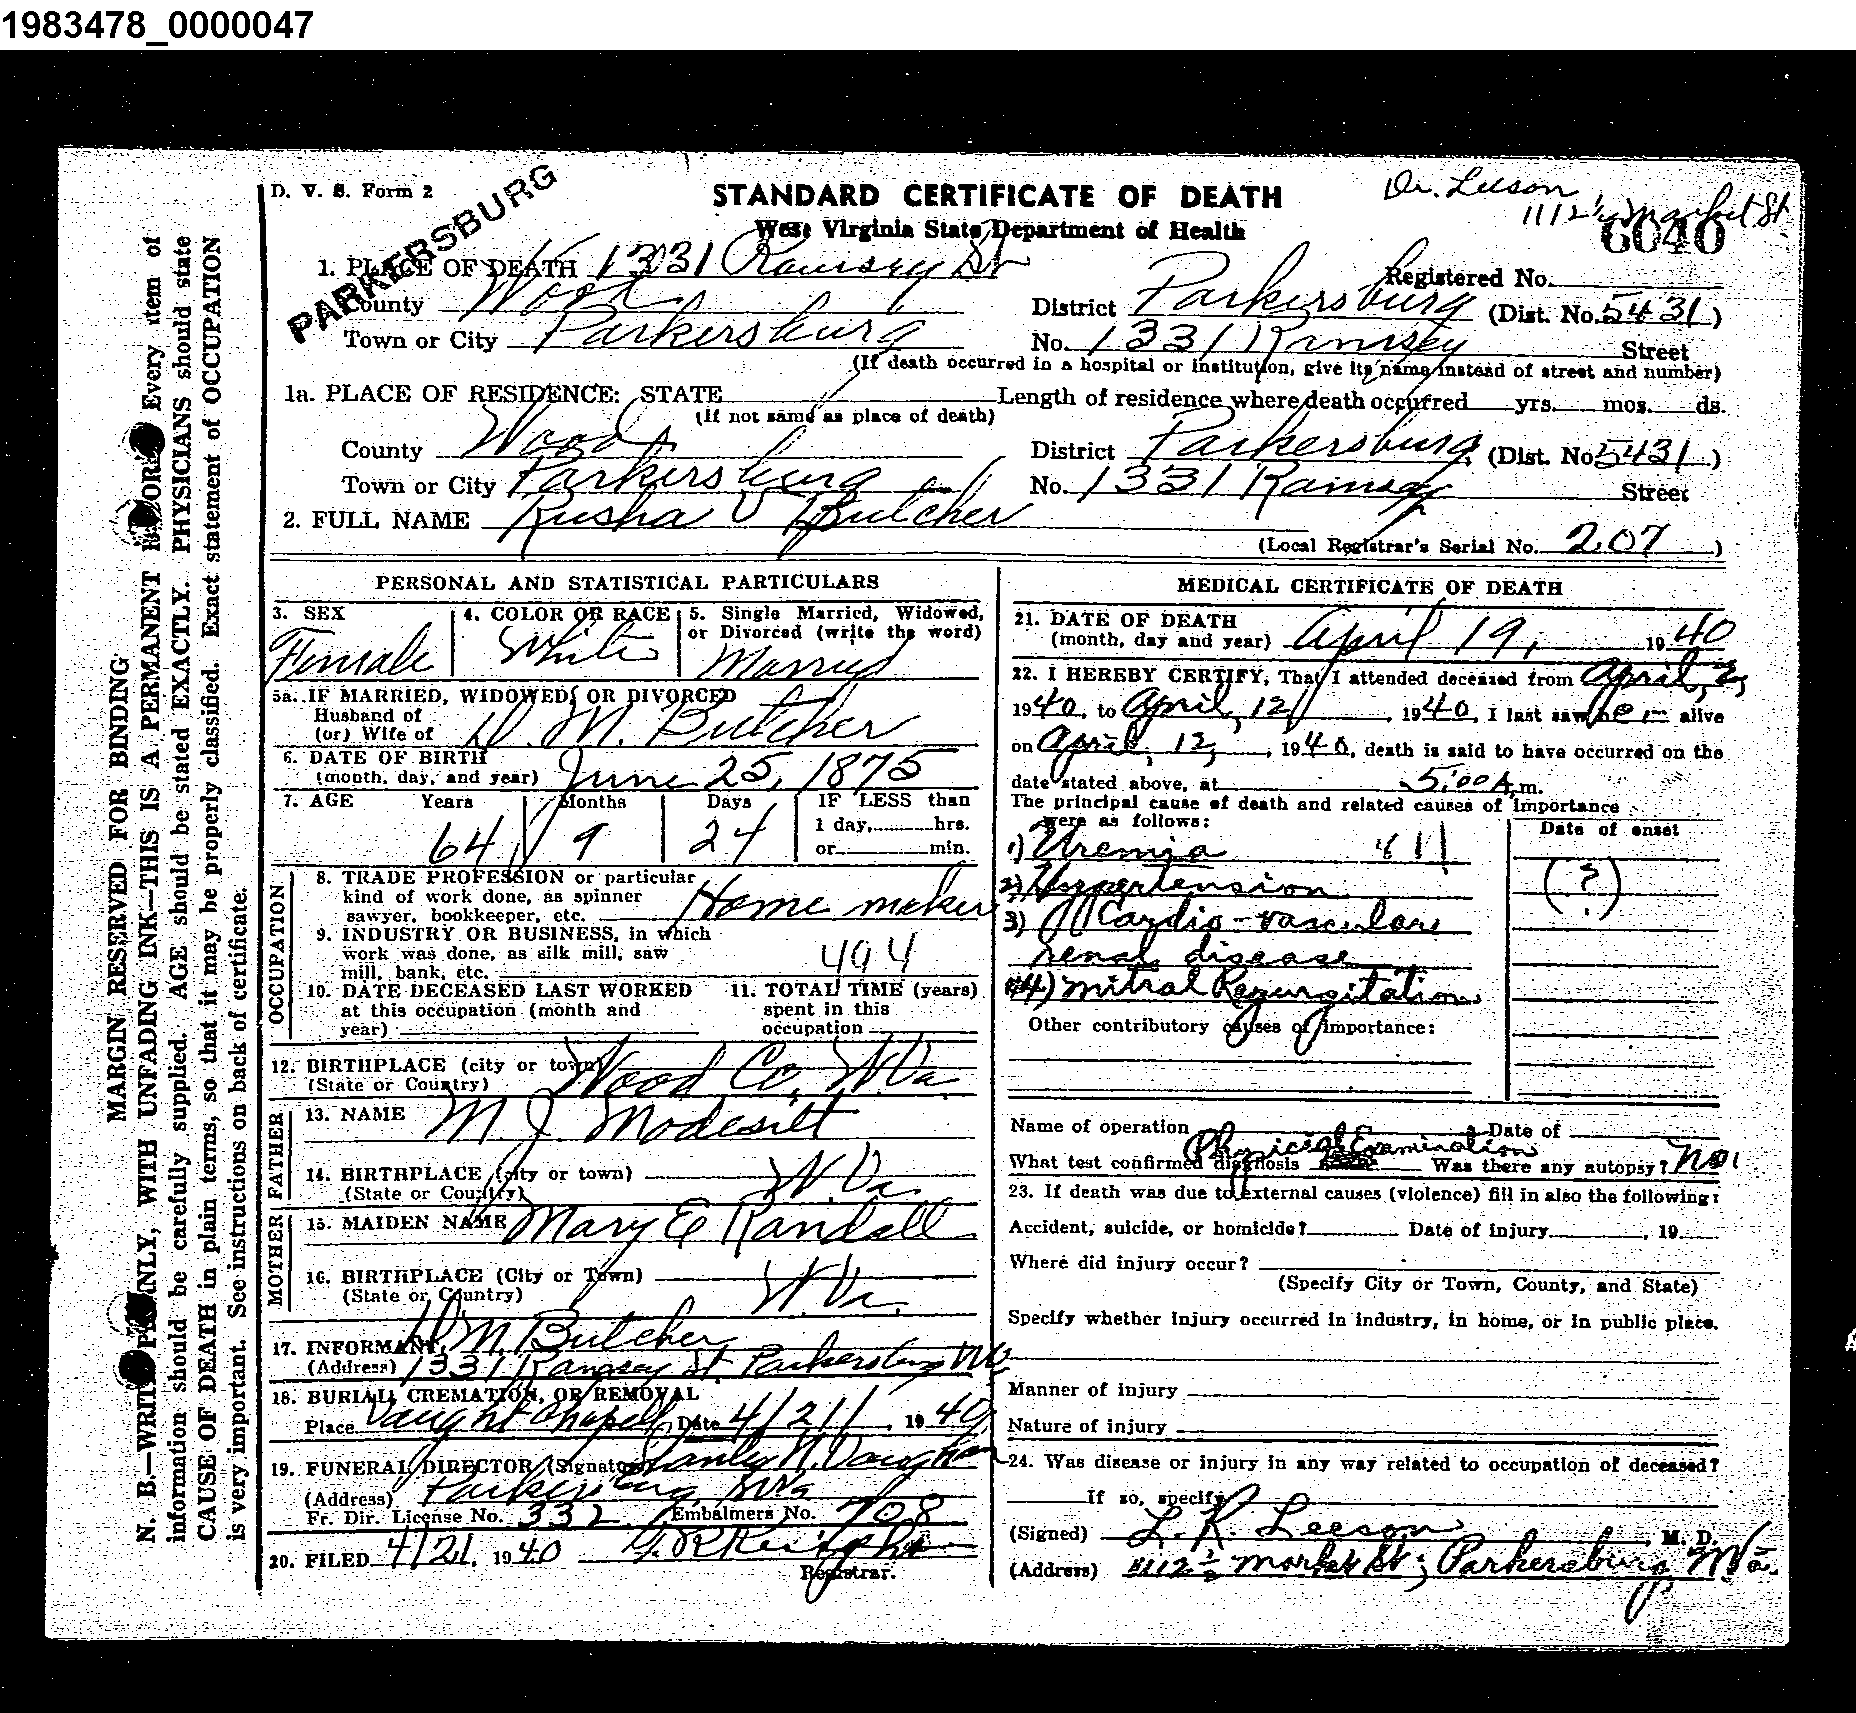 1983478_0000047
D. V. S. Form 2
PARKERSBURG
STANDARD CERTIFICATE OF DEATH
West Virginia State Department of Health
Dr. Leeson
1112½ Market St
6040
1. PLACE OF DEATH 1331 Ramsey St
Registered No.
County Wood District Parkersburg (Dist. No. 5431)
Town or City Parkersburg No. 1331 Ramsey Street
(If death occurred in a hospital or institution, give its name instead of street and number)
1a. PLACE OF RESIDENCE: STATE Length of residence where death occurred yrs. mos. ds.
(If not same as place of death)
County Wood District Parkersburg (Dist. No 5431)
Town or City Parkersburg No. 1331 Ramsey Street
2. FULL NAME Rusha V Butcher
(Local Registrar's Serial No. 207)
PERSONAL AND STATISTICAL PARTICULARS
3. SEX Female
4. COLOR OR RACE White
5. Single Married, Widowed, or Divorced (write the word) Married
5a. IF MARRIED, WIDOWED, OR DIVORCED
Husband of
(or) Wife of D. M. Butcher
6. DATE OF BIRTH
(month, day, and year) June 25, 1875
7. AGE Years Months Days IF LESS than
1 day, hrs.
64 9 24 or min.
OCCUPATION
8. TRADE PROFESSION or particular
kind of work done, as spinner
sawyer, bookkeeper, etc. Home maker
9. INDUSTRY OR BUSINESS, in which
work was done, as silk mill, saw
mill, bank, etc. 494
10. DATE DECEASED LAST WORKED
at this occupation (month and
year)
11. TOTAL TIME (years)
spent in this
occupation
12. BIRTHPLACE (city or town) Wood Co, W.Va.
(State or Country)
FATHER
13. NAME M. J. Modesitt
14. BIRTHPLACE (city or town) W. Va.
(State or Country)
MOTHER
15. MAIDEN NAME Mary E Randall
16. BIRTHPLACE (City or Town) W. Va.
(State or Country)
17. INFORMANT D. M. Butcher
(Address) 1331 Ramsey St. Parkersburg W Va
18. BURIAL, CREMATION, OR REMOVAL
Place Vaught Chapel Date 4/21/, 1940
19. FUNERAL DIRECTOR (Signature) Stanley N. Vaughan
(Address) Parkersburg, W Va
Fr. Dir. License No. 332 Embalmers No. 708
20. FILED 4/21, 1940
Registrar.
MEDICAL CERTIFICATE OF DEATH
21. DATE OF DEATH
(month, day and year) April 19, 1940
22. I HEREBY CERTIFY, That I attended deceased from April, 2,
1940, to April, 12, 1940, I last saw her alive
on April, 12, 1940, death is said to have occurred on the
date stated above, at 5:00 A.m.
The principal cause of death and related causes of importance
were as follows:
Date of onset
1) Uremia
2) Hypertension (?)
3) Cardio-vascular
renal disease
4) Mitral Regurgitation
Other contributory causes of importance:
Name of operation Date of
What test confirmed diagnosis Physical Examination Was there any autopsy? No
23. If death was due to external causes (violence) fill in also the following:
Accident, suicide, or homicide? Date of injury , 19
Where did injury occur?
(Specify City or Town, County, and State)
Specify whether injury occurred in industry, in home, or in public place.
Manner of injury
Nature of injury
24. Was disease or injury in any way related to occupation of deceased?
If so, specify
(Signed) L. K. Leeson, M. D.
(Address) 1112½ Market St; Parkersburg, W Va.
MARGIN RESERVED FOR BINDING
N. B.—WRITE PLAINLY, WITH UNFADING INK—THIS IS A PERMANENT RECORD Every item of
information should be carefully supplied. AGE should be stated EXACTLY. PHYSICIANS should state
CAUSE OF DEATH in plain terms, so that it may be properly classified. Exact statement of OCCUPATION
is very important. See instructions on back of certificate.